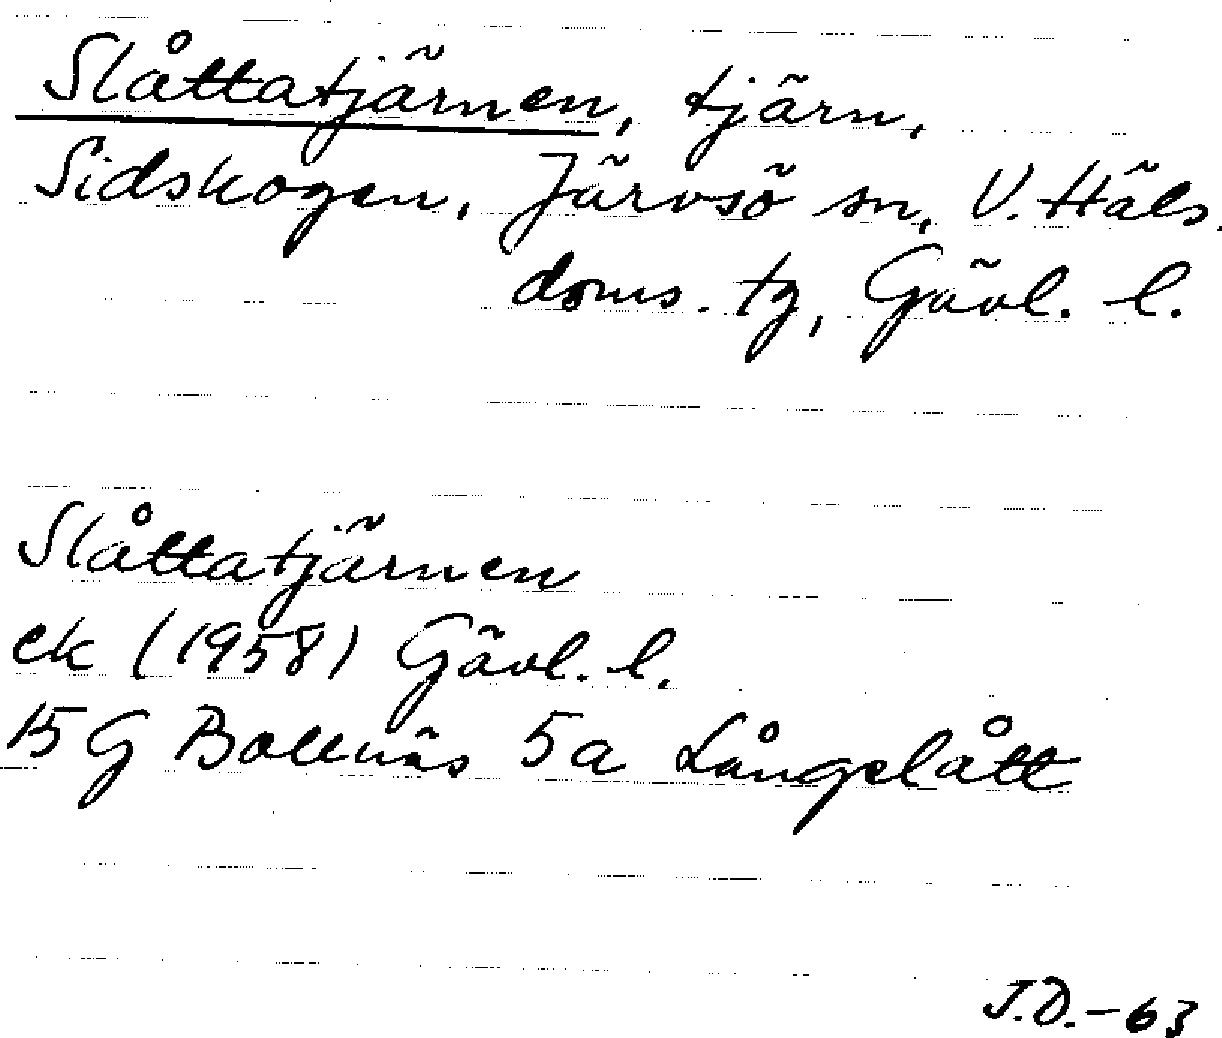 Slåttatjärnen, tjärn,
Sidskogen, Järvsö sn, V. Häls.
doms. tg, Gävl. l.
Slåttatjärnen
ek (1958) Gävl. l.
15G Bollnäs 5a Långslått
J.D.-63